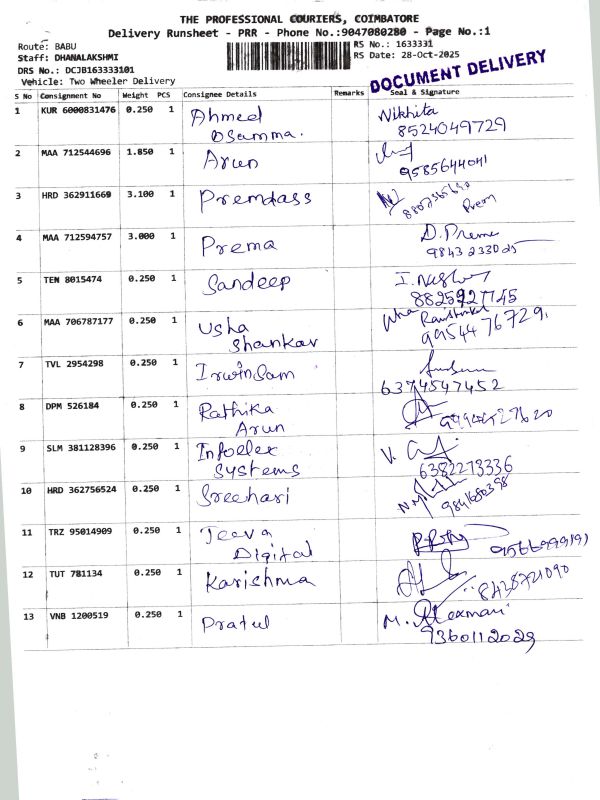 THE PROFESSIONAL COURIERS, COIMBATORE
Delivery Runsheet - PRR - Phone No.:9047080280 - Page No.:1
Route: BABU
RS No.: 1633331
Staff: DHANALAKSHMI
RS Date: 28-Oct-2025
DRS No.: DCJB163333101
Vehicle: Two Wheeler Delivery
DOCUMENT DELIVERY
S No Consignment No Weight PCS Consignee Details Remarks Seal & Signature
1 KUR 6000831476 0.250 1 Ahmed Nikhita
Osamma. 8524049729
2 MAA 712544696 1.850 1 Arun
9585644041
3 HRD 362911669 3.100 1 Premdass
Prem
4 MAA 712594757 3.000 1 Prema D. Prema
9843233025
5 TEN 8015474 0.250 1 Sandeep
8825927745
6 MAA 706787177 0.250 1 Usha Usha
Shankar 9954476729.
7 TVL 2954298 0.250 1 Irwin Sam
6374547452
8 DPM 526184 0.250 1 Rathika
Arun
9 SLM 381128396 0.250 1 Infoelex
Systems 6382273336
10 HRD 362756524 0.250 1 Sreehari
11 TRZ 95014909 0.250 1 Jeeva
Digital
12 TUT 781134 0.250 1 Karishma
8438721090
13 VNB 1200519 0.250 1 Pratul
9360112029